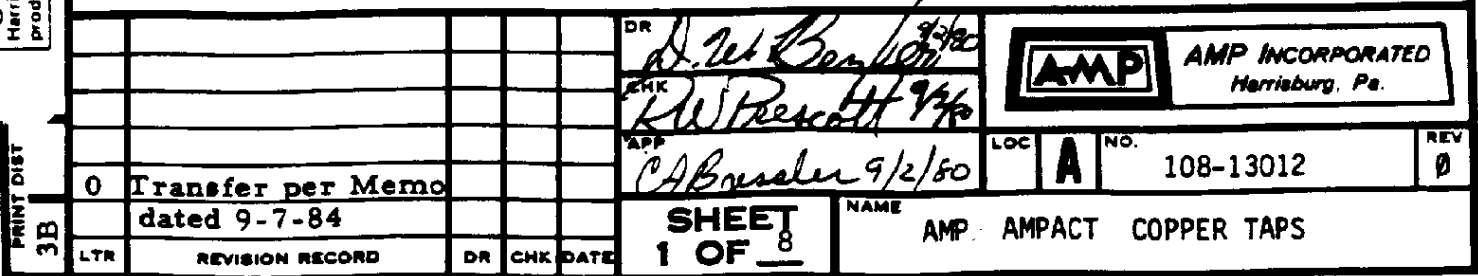 Harri
prod
PRINT DIST
3B
0 Transfer per Memo
dated 9-7-84
LTR REVISION RECORD DR CHK DATE
DR
9/2/80
CHK
RW Prescott
APP
CA Bressler 9/2/80
SHEET
1 OF 8
AMP
AMP INCORPORATED
Harrisburg, Pa.
LOC A
NO. 108-13012
REV 0
NAME
AMP AMPACT COPPER TAPS